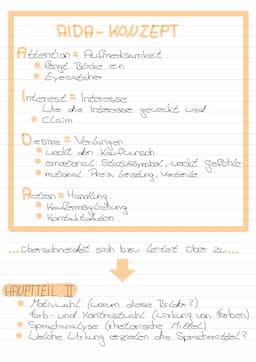 AIDA-KONZEPT
Attention = Aufmerksamkeit
fängt Blicke ein
Eyecatcher
Interest = Interesse
Wie die Interesse geweckt wird
Claim
Desire = Verlangen
weckt den Kaufwunsch
emotional: Statussymbol, weckt Gefühle
rational: Preis, Leistung, Vorteile
Action = Handlung
Kaufermöglichung
Kontaktdaten
...überschneidet sich bzw. leitet über zu...
HAUPTTEIL II
Motivwahl (warum diese Bilder?)
Farb- und Kontrastwahl (Wirkung von Farben)
Sprachanalyse (rhetorische Mittel)
Welche Wirkung erzielen die Sprachmittel?